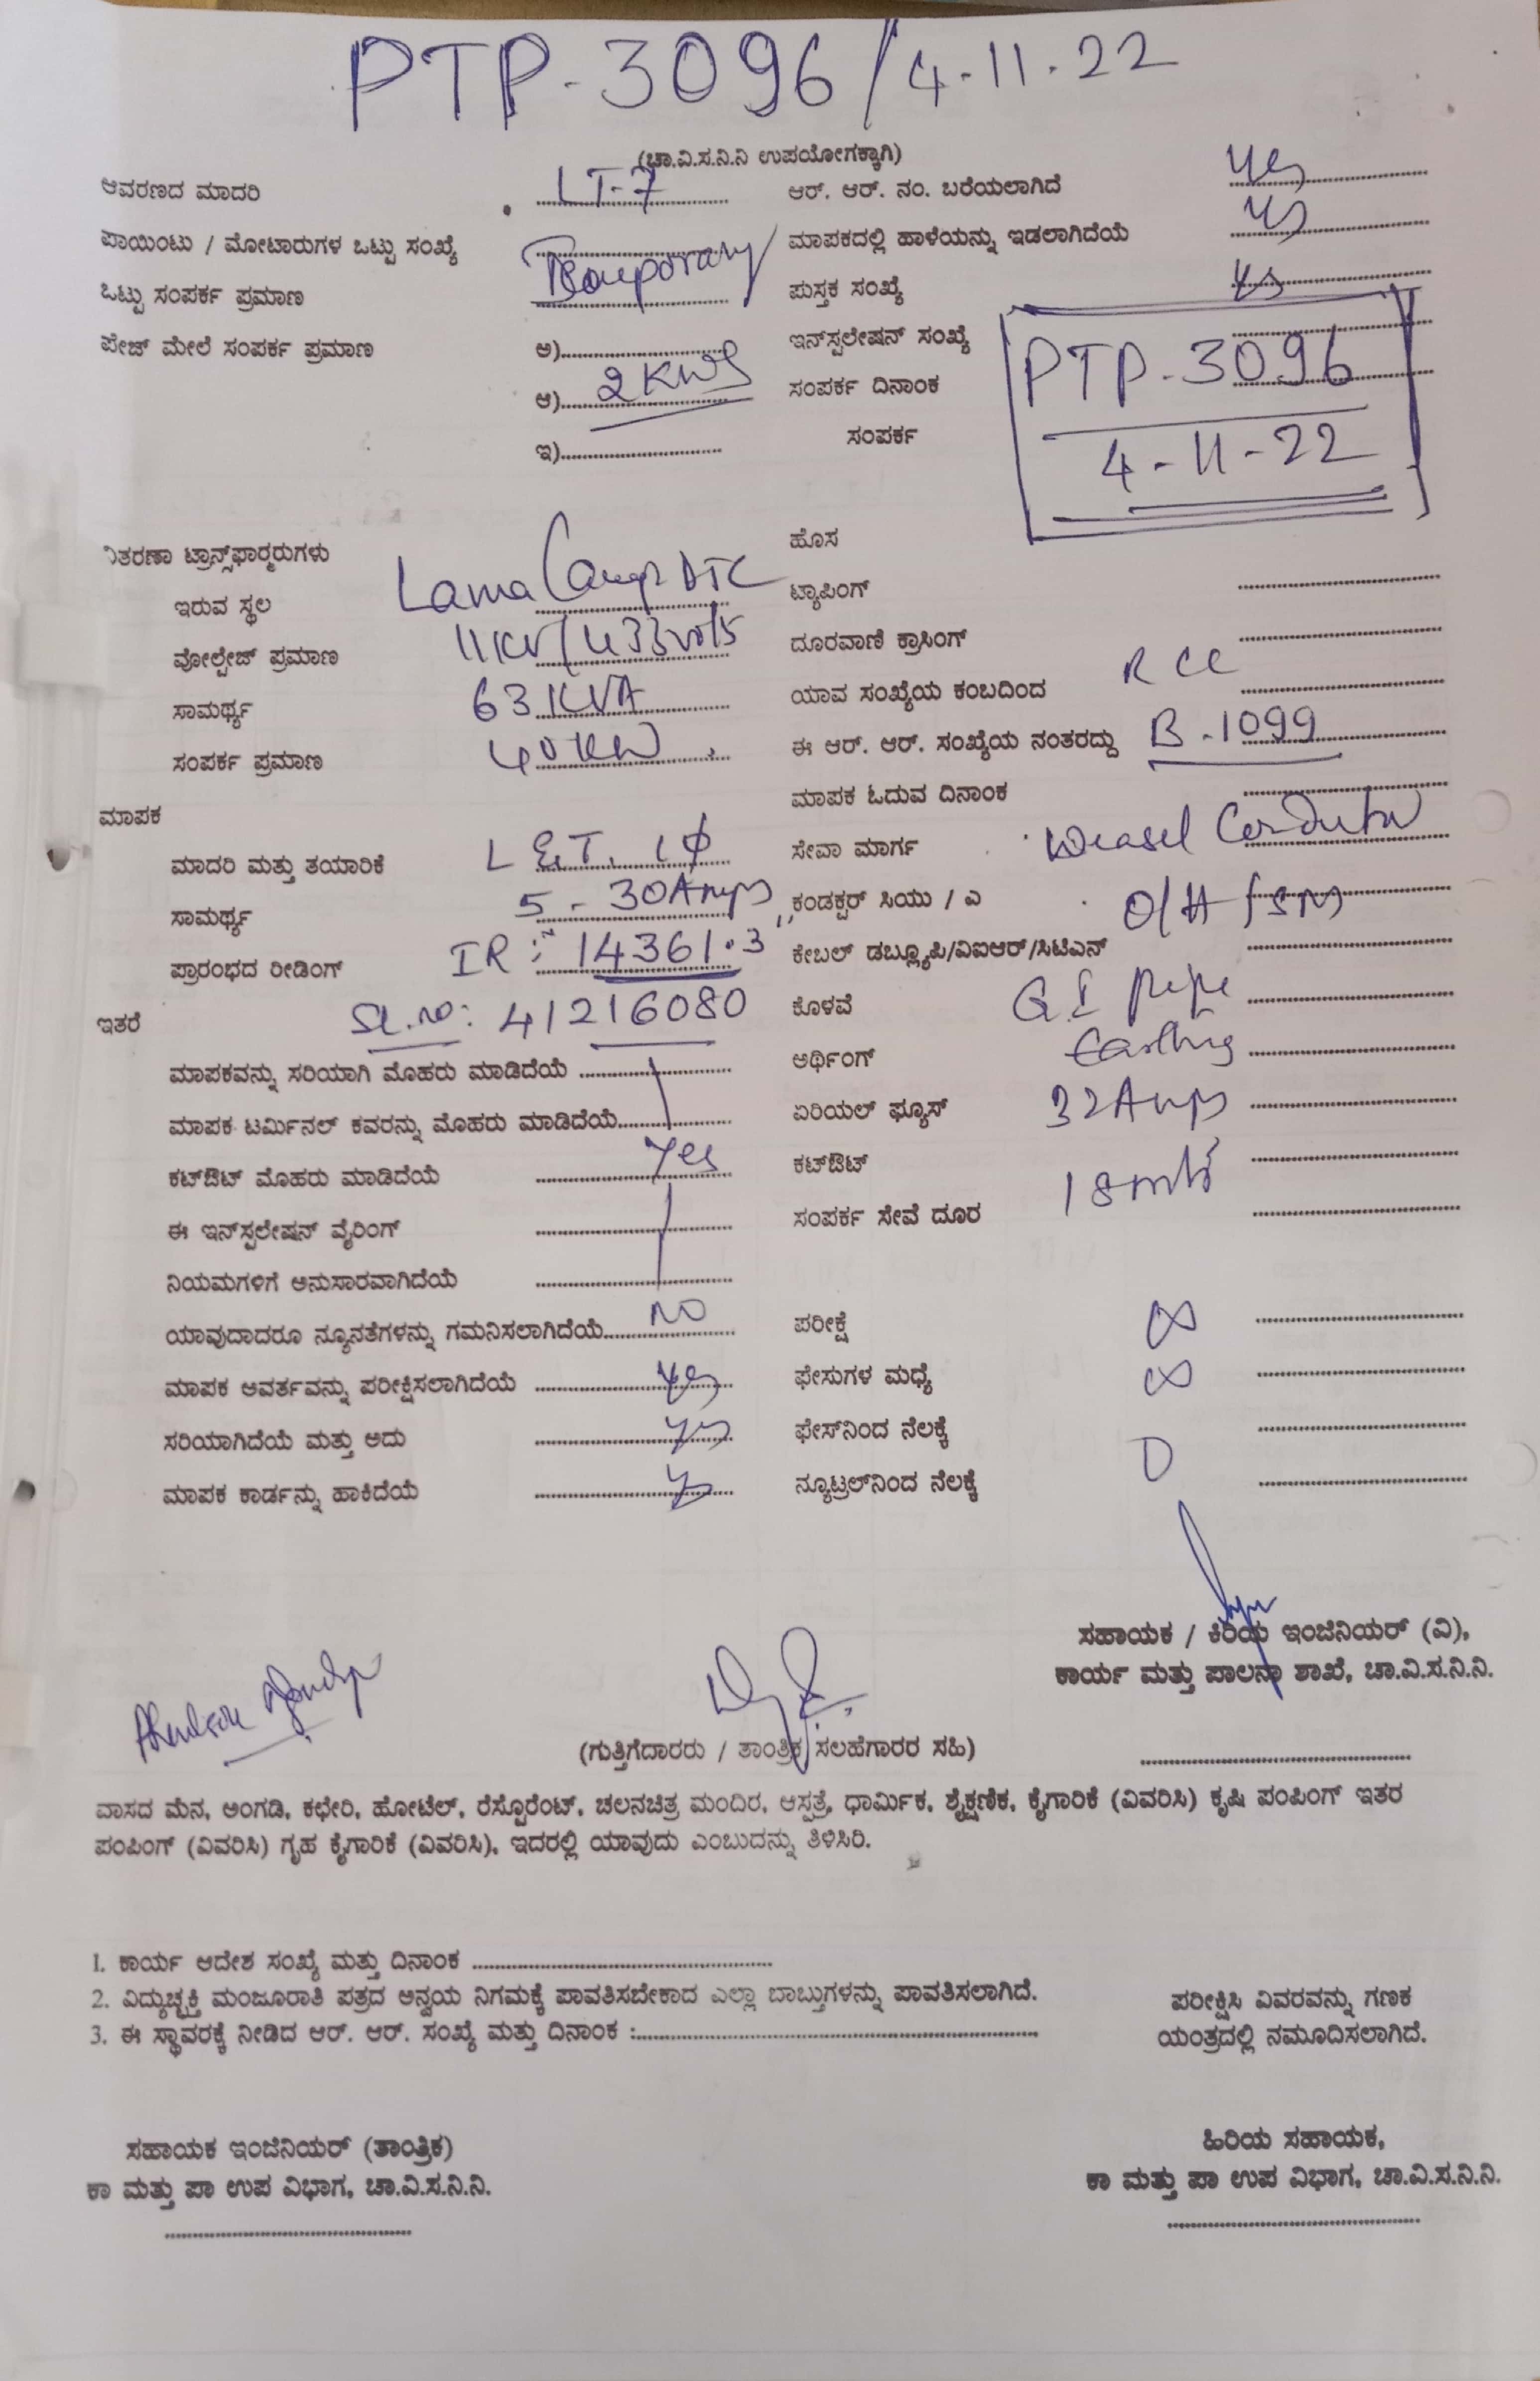 PTP-3096/4-11-22
(ಚಾ.ವಿ.ಸ.ನಿ.ನಿ ಉಪಯೋಗಕ್ಕಾಗಿ)
ಆವರಣದ ಮಾದರಿ LT-7 ಆರ್. ಆರ್. ನಂ. ಬರೆಯಲಾಗಿದೆ Yes
ಪಾಯಿಂಟು / ಮೋಟಾರುಗಳ ಒಟ್ಟು ಸಂಖ್ಯೆ Temporary ಮಾಪಕದಲ್ಲಿ ಹಾಳೆಯನ್ನು ಇಡಲಾಗಿದೆಯೆ Yes
ಒಟ್ಟು ಸಂಪರ್ಕ ಪ್ರಮಾಣ ಪುಸ್ತಕ ಸಂಖ್ಯೆ Yes
ಪೇಜ್ ಮೇಲೆ ಸಂಪರ್ಕ ಪ್ರಮಾಣ ಅ) ಇನ್‌ಸ್ಟಲೇಷನ್ ಸಂಖ್ಯೆ PTP-3096
ಆ) 2KWs ಸಂಪರ್ಕ ದಿನಾಂಕ 4-11-22
ಇ) ಸಂಪರ್ಕ
ವಿತರಣಾ ಟ್ರಾನ್ಸ್‌ಫಾರ್ಮರುಗಳು ಹೊಸ
ಇರುವ ಸ್ಥಲ Lama Camp DTC ಟ್ಯಾಪಿಂಗ್
ವೋಲ್ಟೇಜ್ ಪ್ರಮಾಣ 11KV/433volts ದೂರವಾಣಿ ಕ್ರಾಸಿಂಗ್
ಸಾಮರ್ಥ್ಯ 63KVA ಯಾವ ಸಂಖ್ಯೆಯ ಕಂಬದಿಂದ RCC
ಸಂಪರ್ಕ ಪ್ರಮಾಣ 40KW ಈ ಆರ್. ಆರ್. ಸಂಖ್ಯೆಯ ನಂತರದ್ದು B-1099
ಮಾಪಕ ಮಾಪಕ ಓದುವ ದಿನಾಂಕ
ಮಾದರಿ ಮತ್ತು ತಯಾರಿಕೆ L&T. 1ϕ ಸೇವಾ ಮಾರ್ಗ Weasel Conductor
ಸಾಮರ್ಥ್ಯ 5-30Amps ಕಂಡಕ್ಟರ್ ಸಿಯು / ಎ O/H
ಪ್ರಾರಂಭದ ರೀಡಿಂಗ್ IR: 14361.3 ಕೇಬಲ್ ಡಬ್ಲ್ಯೂಪಿ/ವಿಐಆರ್/ಸಿಟಿಎಸ್
ಇತರೆ Sl.no: 41216080 ಕೊಳವೆ G I pipe
ಮಾಪಕವನ್ನು ಸರಿಯಾಗಿ ಮೊಹರು ಮಾಡಿದೆಯೆ ಅರ್ಥಿಂಗ್ Earthing
ಮಾಪಕ ಟರ್ಮಿನಲ್ ಕವರನ್ನು ಮೊಹರು ಮಾಡಿದೆಯೆ ಏರಿಯಲ್ ಫ್ಯೂಸ್ 32Amps
ಕಟ್‌ಔಟ್ ಮೊಹರು ಮಾಡಿದೆಯೆ Yes ಕಟ್‌ಔಟ್
ಈ ಇನ್‌ಸ್ಟಲೇಷನ್ ವೈರಿಂಗ್ ಸಂಪರ್ಕ ಸೇವೆ ದೂರ 18mts
ನಿಯಮಗಳಿಗೆ ಅನುಸಾರವಾಗಿದೆಯೆ
ಯಾವುದಾದರೂ ನ್ಯೂನತೆಗಳನ್ನು ಗಮನಿಸಲಾಗಿದೆಯೆ NO ಪರೀಕ್ಷೆ ∞
ಮಾಪಕ ಆವರ್ತವನ್ನು ಪರೀಕ್ಷಿಸಲಾಗಿದೆಯೆ Yes ಫೇಸುಗಳ ಮಧ್ಯೆ ∞
ಸರಿಯಾಗಿದೆಯೆ ಮತ್ತು ಅದು Yes ಫೇಸ್‌ನಿಂದ ನೆಲಕ್ಕೆ
ಮಾಪಕ ಕಾರ್ಡನ್ನು ಹಾಕಿದೆಯೆ Yes ನ್ಯೂಟ್ರಲ್‌ನಿಂದ ನೆಲಕ್ಕೆ 0
ಸಹಾಯಕ / ಕಿರಿಯ ಇಂಜಿನಿಯರ್ (ವಿ),
ಕಾರ್ಯ ಮತ್ತು ಪಾಲನಾ ಶಾಖೆ, ಚಾ.ವಿ.ಸ.ನಿ.ನಿ.
(ಗುತ್ತಿಗೆದಾರರು / ತಾಂತ್ರಿಕ ಸಲಹೆಗಾರರ ಸಹಿ)
ವಾಸದ ಮನೆ, ಅಂಗಡಿ, ಕಛೇರಿ, ಹೋಟೆಲ್, ರೆಸ್ಟೊರೆಂಟ್, ಚಲನಚಿತ್ರ ಮಂದಿರ, ಆಸ್ಪತ್ರೆ, ಧಾರ್ಮಿಕ, ಶೈಕ್ಷಣಿಕ, ಕೈಗಾರಿಕೆ (ವಿವರಿಸಿ) ಕೃಷಿ ಪಂಪಿಂಗ್ ಇತರ
ಪಂಪಿಂಗ್ (ವಿವರಿಸಿ) ಗೃಹ ಕೈಗಾರಿಕೆ (ವಿವರಿಸಿ), ಇದರಲ್ಲಿ ಯಾವುದು ಎಂಬುದನ್ನು ತಿಳಿಸಿರಿ.
1. ಕಾರ್ಯ ಆದೇಶ ಸಂಖ್ಯೆ ಮತ್ತು ದಿನಾಂಕ
2. ವಿದ್ಯುಚ್ಛಕ್ತಿ ಮಂಜೂರಾತಿ ಪತ್ರದ ಅನ್ವಯ ನಿಗಮಕ್ಕೆ ಪಾವತಿಸಬೇಕಾದ ಎಲ್ಲಾ ಬಾಬ್ತುಗಳನ್ನು ಪಾವತಿಸಲಾಗಿದೆ. ಪರೀಕ್ಷಿಸಿ ವಿವರವನ್ನು ಗಣಕ
3. ಈ ಸ್ಥಾವರಕ್ಕೆ ನೀಡಿದ ಆರ್. ಆರ್. ಸಂಖ್ಯೆ ಮತ್ತು ದಿನಾಂಕ : ಯಂತ್ರದಲ್ಲಿ ನಮೂದಿಸಲಾಗಿದೆ.
ಸಹಾಯಕ ಇಂಜಿನಿಯರ್ (ತಾಂತ್ರಿಕ) ಹಿರಿಯ ಸಹಾಯಕ,
ಕಾ ಮತ್ತು ಪಾ ಉಪ ವಿಭಾಗ, ಚಾ.ವಿ.ಸ.ನಿ.ನಿ. ಕಾ ಮತ್ತು ಪಾ ಉಪ ವಿಭಾಗ, ಚಾ.ವಿ.ಸ.ನಿ.ನಿ.